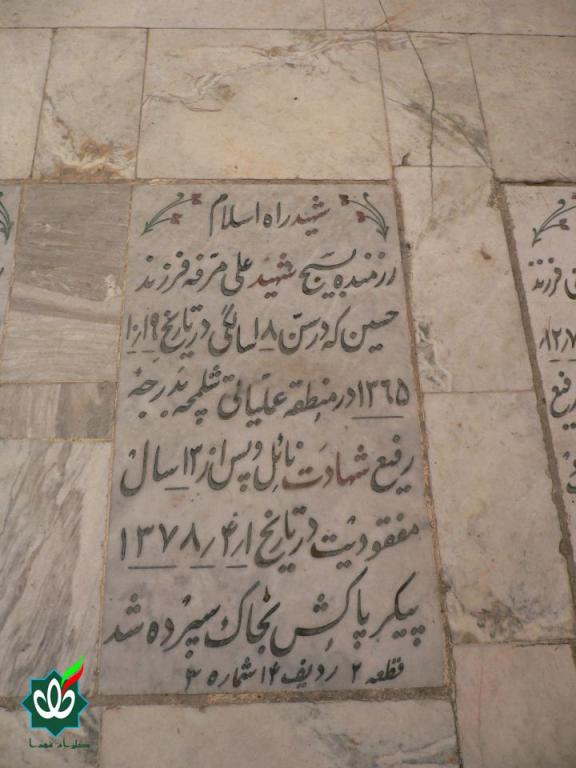 شهید راه اسلام
رزمنده بسیج شهید علی مرفه فرزند
حسین که در سن ۱۸ سالگی در تاریخ ۱۹ر۱۰ر
۱۳۶۵ در منطقه عملیاتی شلمچه بدرجه
رفیع شهادت نائل و پس از ۱۳ سال
مفقودیت در تاریخ ۱ر۴ر۱۳۷۸
پیکر پاکش بخاک سپرده شد
قطعه ۲ ردیف ۱۴ شماره ۳